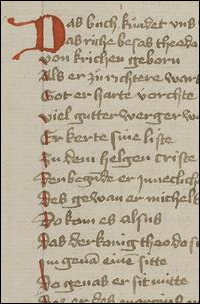 Das buch kundet vns
Das riche besas theodo
von krichen geborn
Als er zu richtere wart
Got er harte vorchte
viel gutter werger w
Er kerte sine liste
In dem helgen criste
den begnde er inneclich
Des gewan er michels
Do kam es alsus
das der konig theodo si
eine sitte
Do genas er sit mitte